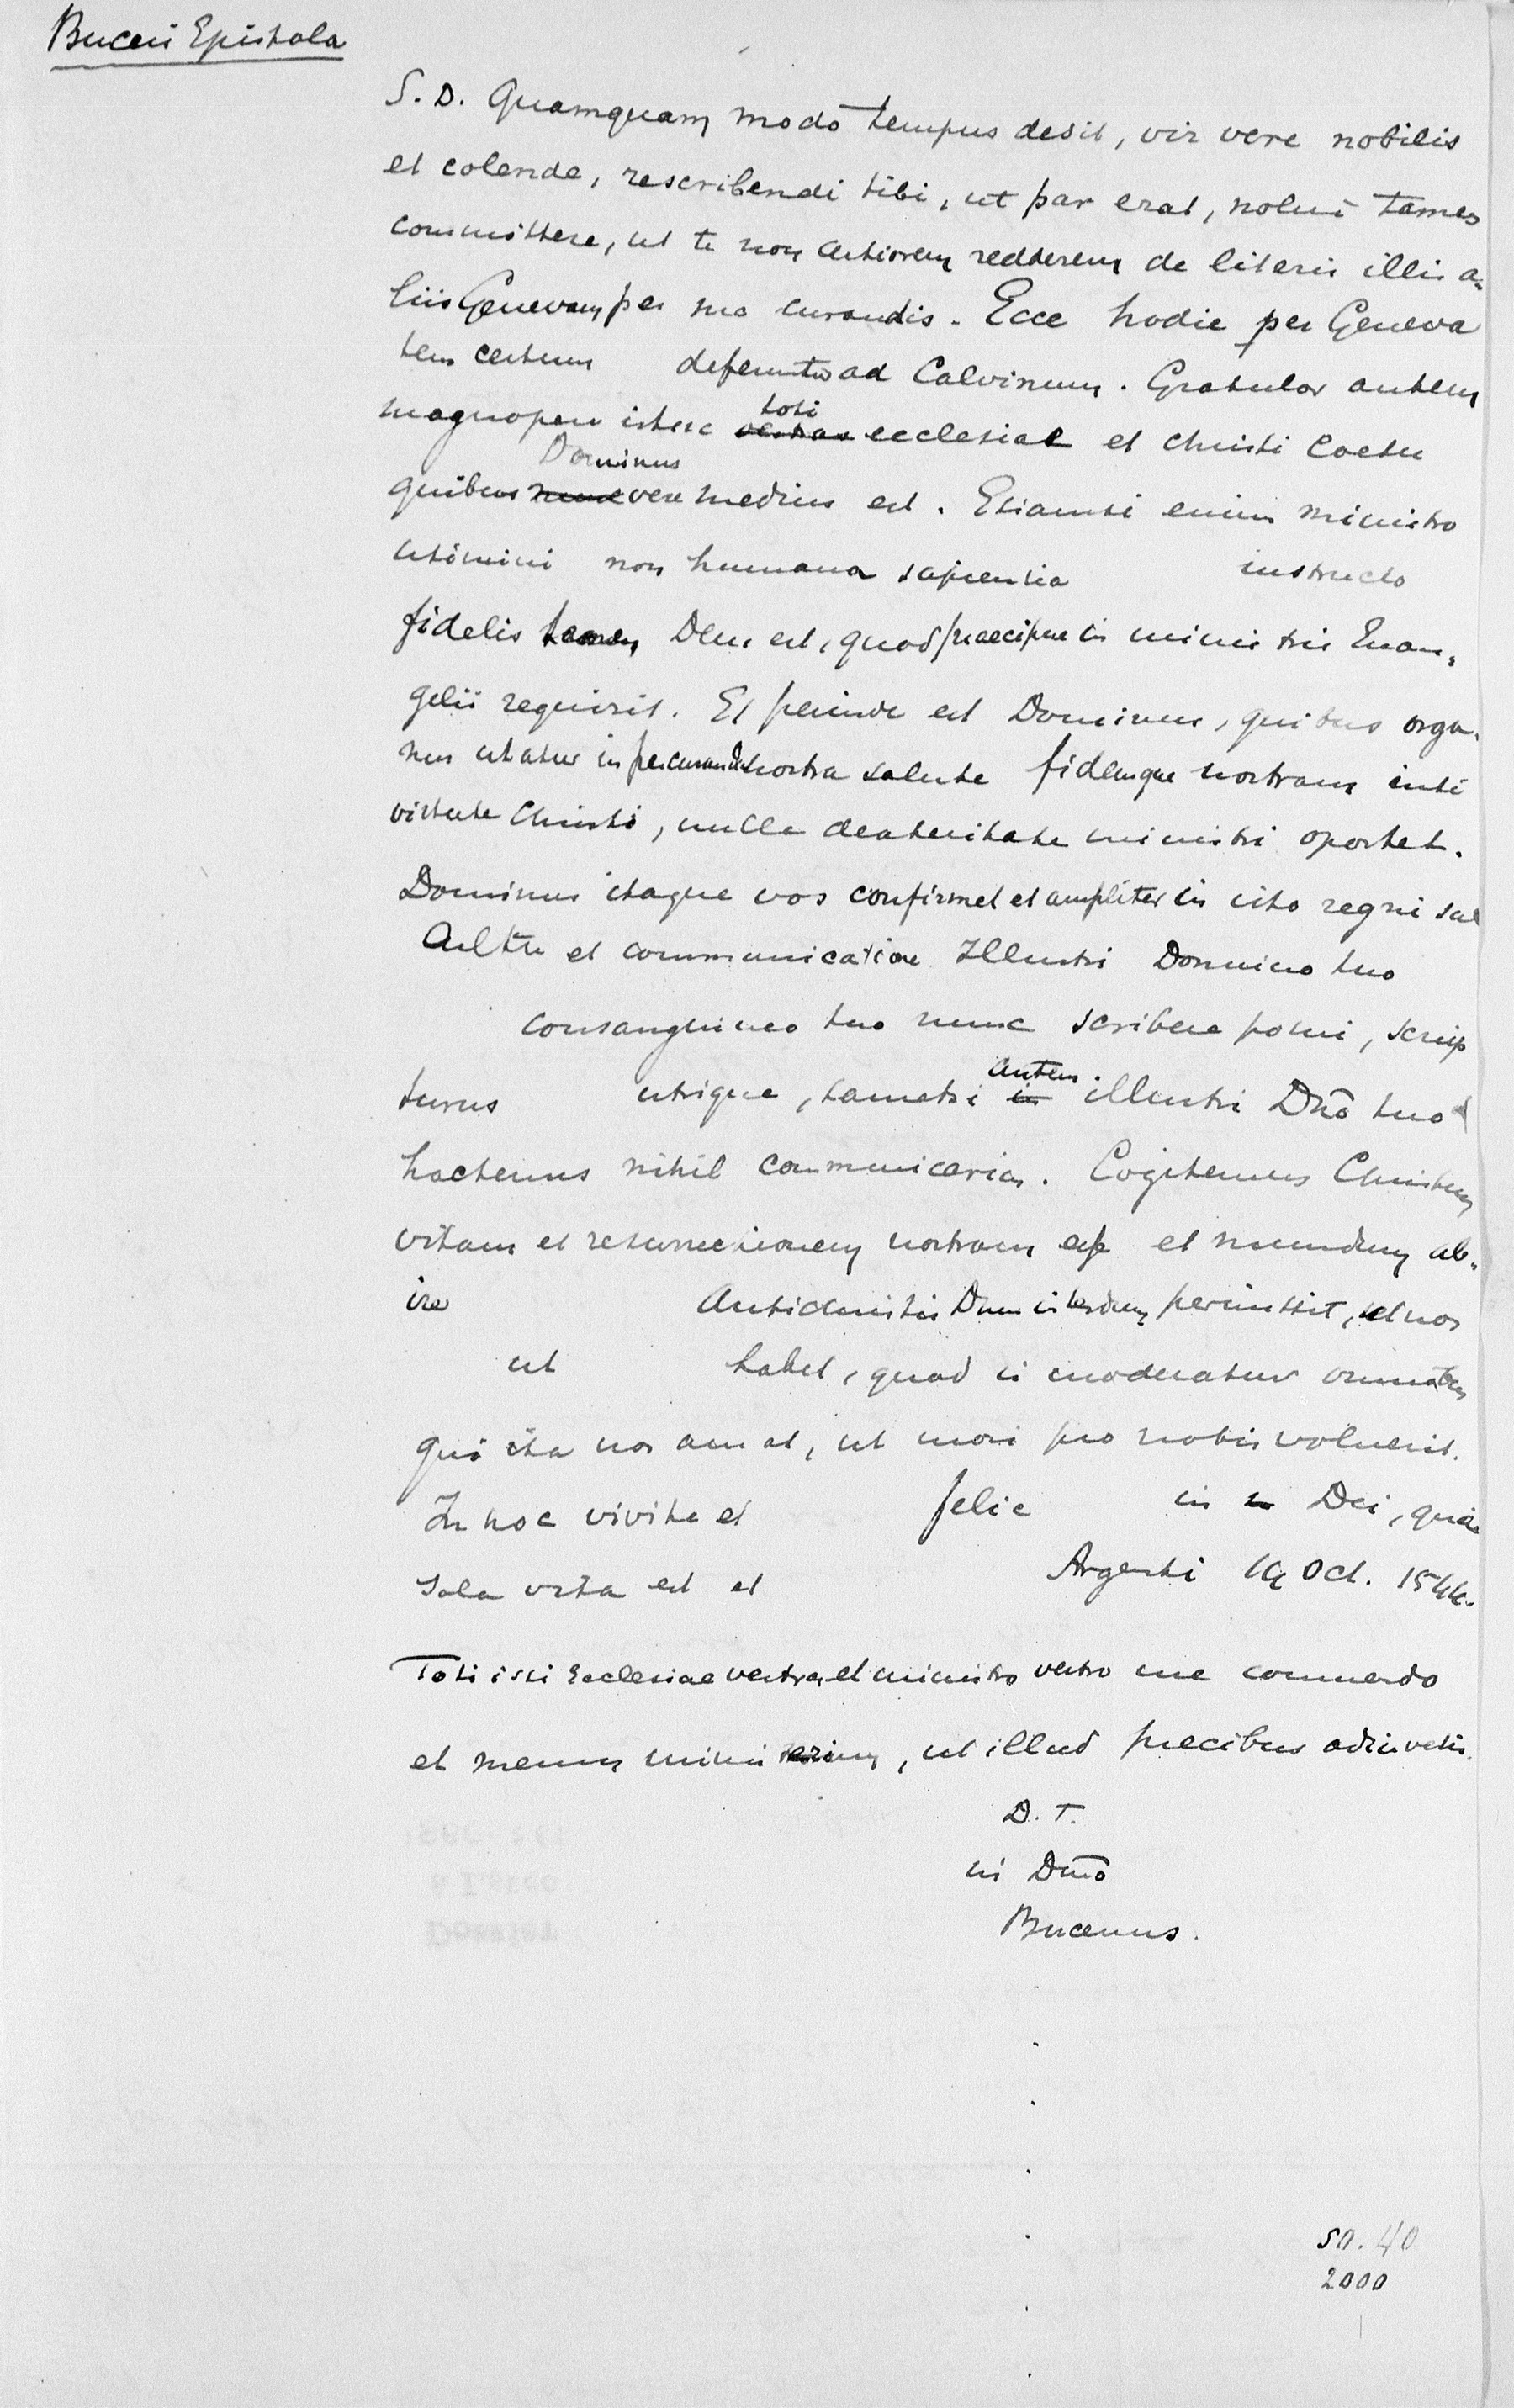 Buceri Epistola
S. D. Quamquam modo tempus desit, vir vere nobilis
et colende, rescribendi tibi, ut par erat, nolui tamen
committere, ut te non certiorem redderem de literis illis a-
liis Genevam per me curandis. Ecce hodie per Geneva
tem certum deferuntur ad Calvinum. Gratulor autem
magnopere istuc vestrae toti ecclesiae et Christi coetu
quibus nunc Dominus vere medius est. Etiamsi enim ministro
utimini non humana sapientia instructo
fidelis tamen Deus est, quod praecipue in ministris Euan-
gelii requirit. Et perinde est Dominus, quibus orga-
nis utatur in percuranda nostra salute fidemque nostram niti
virtute Christi, nulla dexteritate ministri oportet.
Dominus itaque vos confirmet et ampliter in isto regni sui
cultu et communicatione Illustri Domino tuo
consanguineo tuo nunc scribere potui, scrip
turus utrique, tametsi in autem illustri Dno tuo
hactenus nihil communicarim. Cogitemus Christum
vitam et resurrectionem nostram esse et mundum ab-
ire Antichristis Dum interdum permittit, ut nos
ut habet, quod is moderatur omnia
qui ita nos amat, ut mori pro nobis voluerit.
In hoc vivite et felic in Dei, quae
sola vita est et Argenti 19 Oct. 1544.
Toti isti Ecclesiae vestrae et ministro vestro me commendo
et meum ministerium, ut illud precibus adiuvetis.
D. T.
in Dno
Bucerus.
50.40
2000